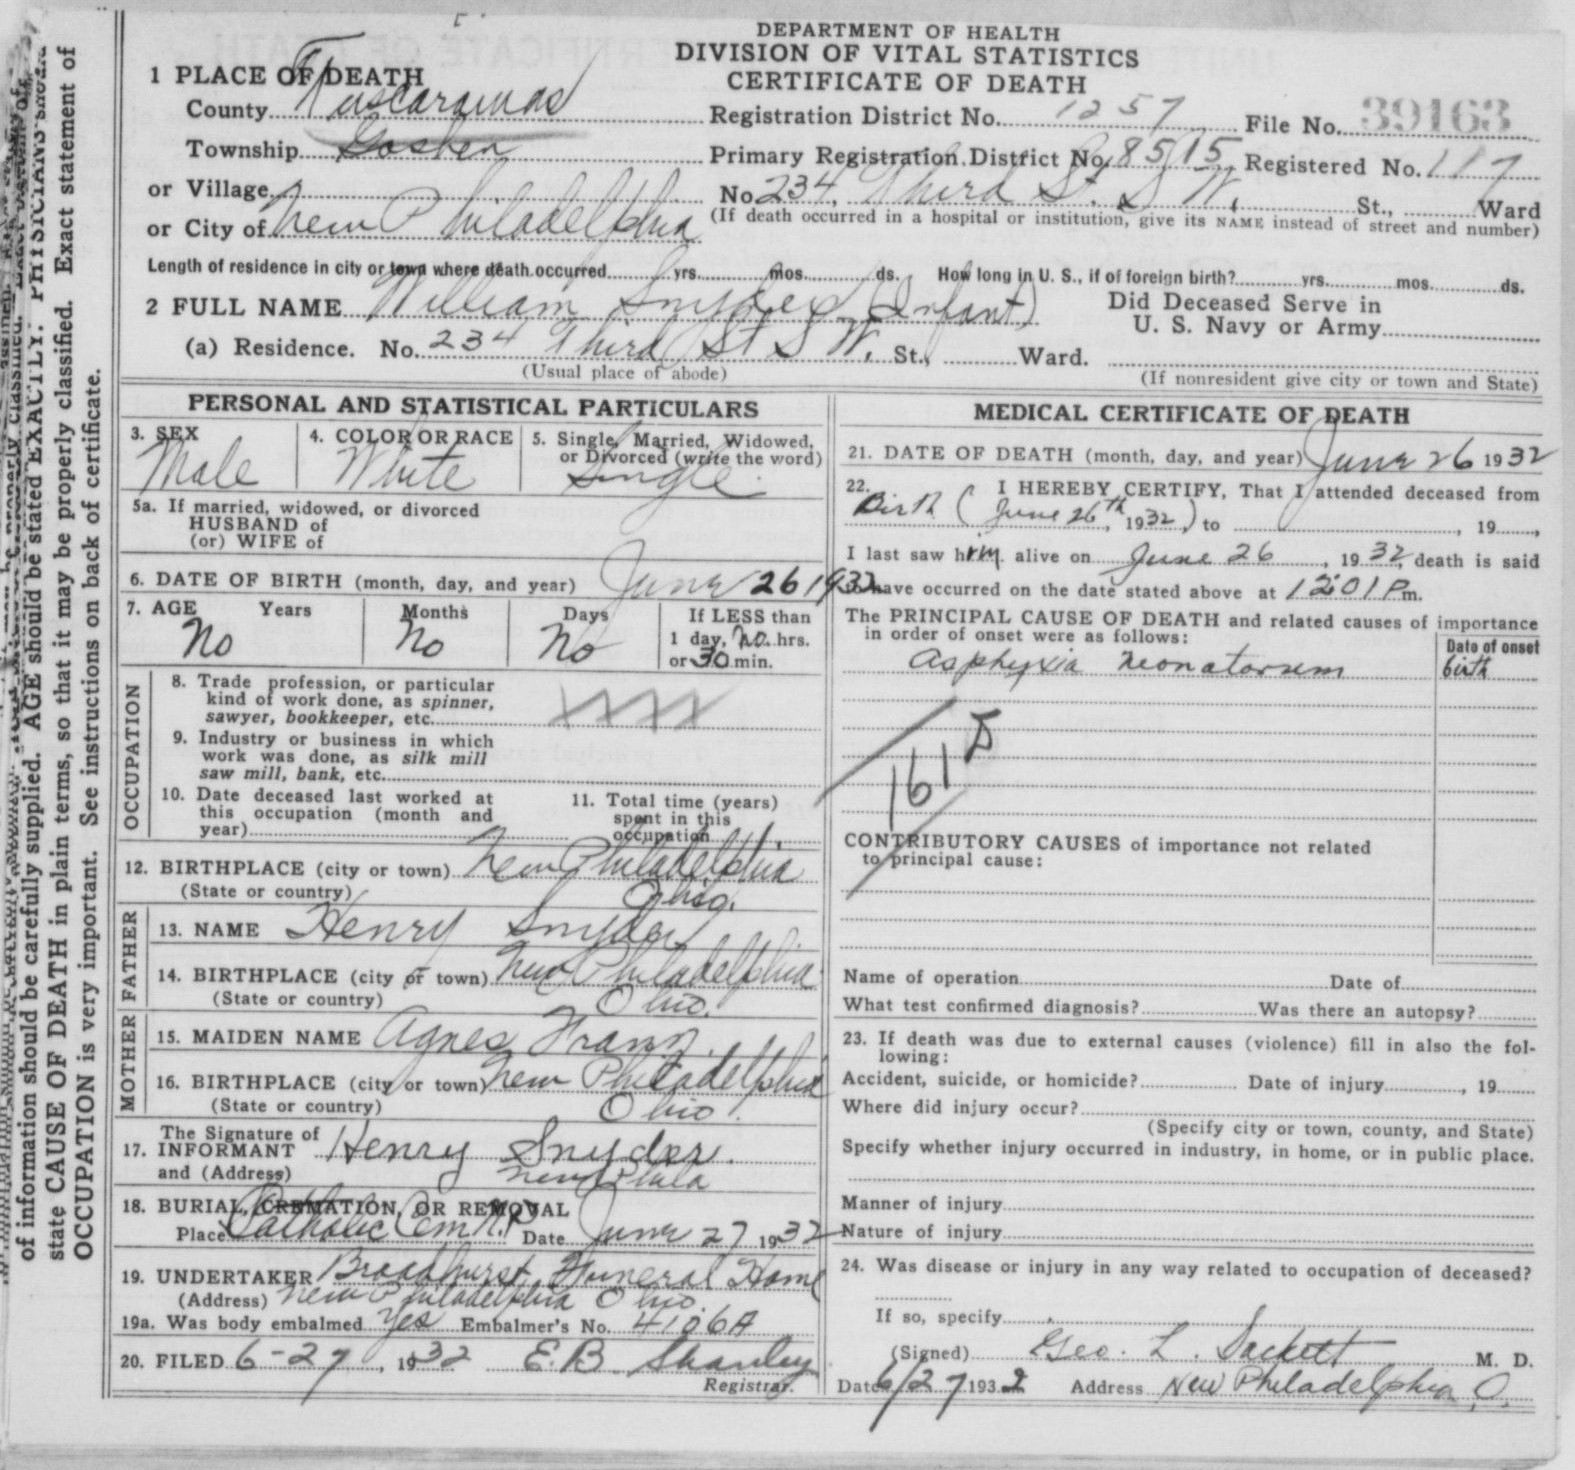 DEPARTMENT OF HEALTH
DIVISION OF VITAL STATISTICS
CERTIFICATE OF DEATH
1 PLACE OF DEATH
County Tuscarawas
Registration District No. 1257 File No. 39163
Township Goshen
Primary Registration District No. 8515 Registered No. 117
or Village No. 234, Third St. S W. St., Ward
or City of New Philadelphia (If death occurred in a hospital or institution, give its NAME instead of street and number)
Length of residence in city or town where death occurred yrs. mos. ds. How long in U. S., if of foreign birth? yrs. mos. ds.
2 FULL NAME William Snyder (Infant) Did Deceased Serve in
U. S. Navy or Army
(a) Residence. No. 234 Third St S W. St., Ward.
(Usual place of abode) (If nonresident give city or town and State)
PERSONAL AND STATISTICAL PARTICULARS
3. SEX 4. COLOR OR RACE 5. Single, Married, Widowed,
or Divorced (write the word)
Male White Single
5a. If married, widowed, or divorced
HUSBAND of
(or) WIFE of
6. DATE OF BIRTH (month, day, and year) June 26 1932
7. AGE Years Months Days If LESS than
No No No 1 day, no hrs.
or 30 min.
OCCUPATION
8. Trade profession, or particular
kind of work done, as spinner,
sawyer, bookkeeper, etc.
9. Industry or business in which
work was done, as silk mill
saw mill, bank, etc.
10. Date deceased last worked at
this occupation (month and
year)
11. Total time (years)
spent in this
occupation
12. BIRTHPLACE (city or town) New Philadelphia
(State or country) Ohio.
FATHER
13. NAME Henry Snyder
14. BIRTHPLACE (city or town) New Philadelphia
(State or country) Ohio.
MOTHER
15. MAIDEN NAME Agnes
16. BIRTHPLACE (city or town) New Philadelphia
(State or country) Ohio.
17. The Signature of
INFORMANT Henry Snyder.
and (Address) New Phila
18. BURIAL, CREMATION, OR REMOVAL
Place Catholic Cem N.P Date June 27 1932
19. UNDERTAKER Broadhurst Funeral Home
(Address) New Philadelphia Ohio.
19a. Was body embalmed Yes Embalmer's No. 4106A
20. FILED 6-27, 1932 E.B. Shanley
Registrar.
MEDICAL CERTIFICATE OF DEATH
21. DATE OF DEATH (month, day, and year) June 26 1932
22. I HEREBY CERTIFY, That I attended deceased from
Birth (June 26th, 1932,) to , 19 ,
I last saw him alive on June 26, 1932, death is said
to have occurred on the date stated above at 12:01 P m.
The PRINCIPAL CAUSE OF DEATH and related causes of importance
in order of onset were as follows: Date of onset
Asphyxia Neonatorum birth
161
CONTRIBUTORY CAUSES of importance not related
to principal cause:
Name of operation Date of
What test confirmed diagnosis? Was there an autopsy?
23. If death was due to external causes (violence) fill in also the fol-
lowing:
Accident, suicide, or homicide? Date of injury , 19
Where did injury occur?
(Specify city or town, county, and State)
Specify whether injury occurred in industry, in home, or in public place.
Manner of injury
Nature of injury
24. Was disease or injury in any way related to occupation of deceased?
If so, specify
(Signed) Geo. L. Sackett M. D.
Date 6/27 1932 Address New Philadelphia, O.
of information should be carefully supplied. AGE should be stated EXACTLY. PHYSICIANS should
state CAUSE OF DEATH in plain terms, so that it may be properly classified. Exact statement of
OCCUPATION is very important. See instructions on back of certificate.